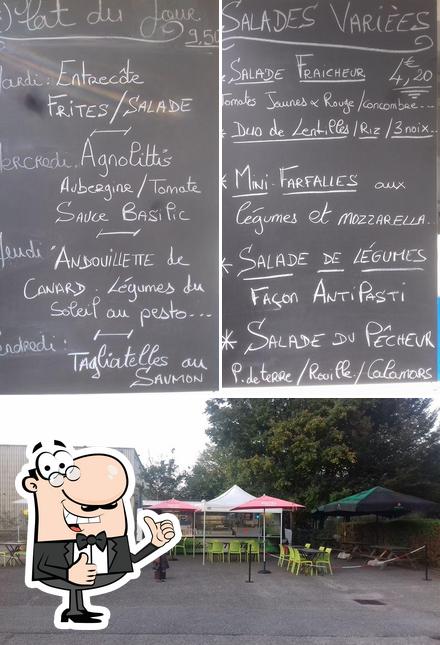 Plat du Jour
9,50
Mardi : Entrecôte
Frites / Salade
Mercredi. Agnolittis
Aubergine / Tomate
Sauce Basilic
Jeudi Andouillette de
Canard. Légumes du
Soleil au pesto...
Vendredi :
Tagliatelles au
Saumon
Salades Variées
Salade Fraicheur 4,20€
Tomates Jaunes & Rouge / Concombre...
Duo de Lentilles / Riz / 3 noix..
* Mini Farfalles aux
légumes et mozzarella.
* Salade de légumes
Façon AntiPasti
* Salade du Pêcheur
P. de terre / Rouille / Calamars